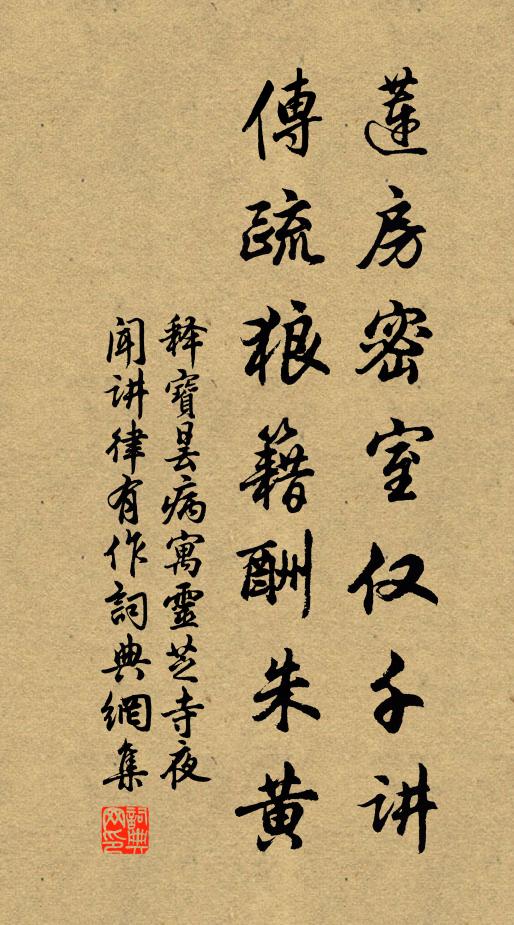 莲房密室仅千讲
傳疏狼籍酬朱黄
释寶曇病寓靈芝寺夜
聞讲律有作詞典網集
詞典网印